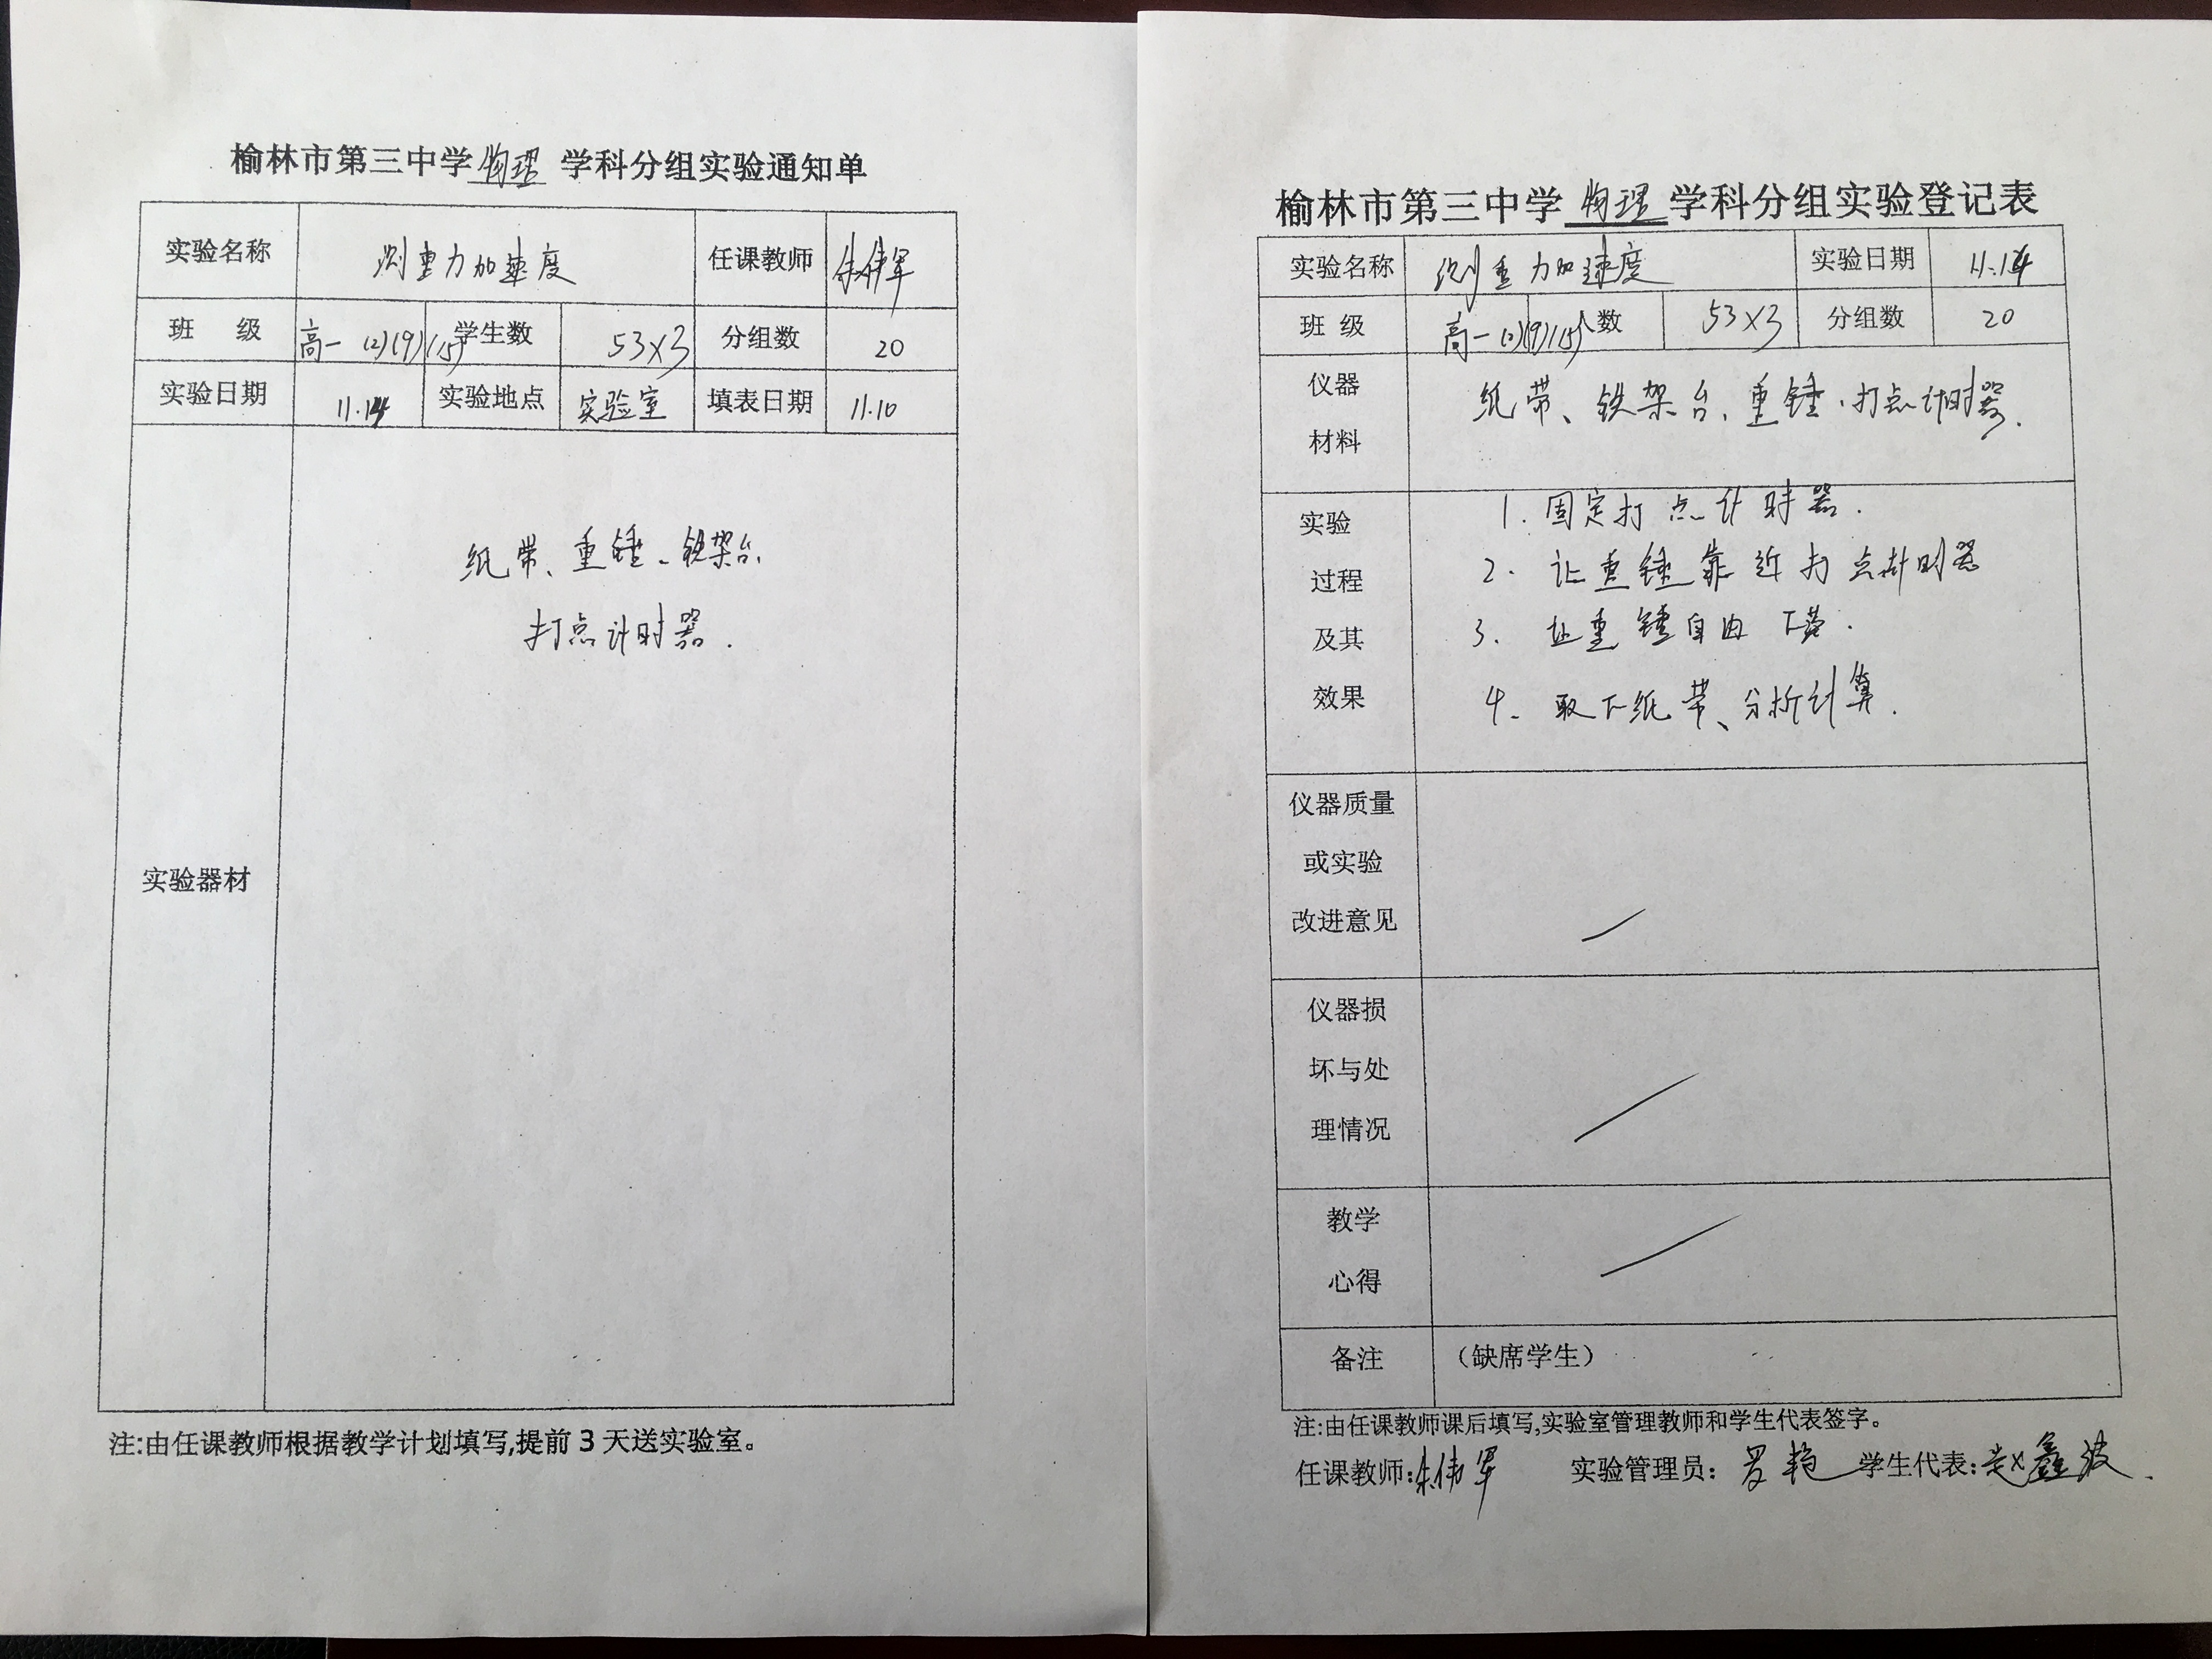 榆林市第三中学 物理 学科分组实验通知单
实验名称 测重力加速度 任课教师 朱伟军
班 级 高一(2)(9)(15) 学生数 53×3 分组数 20
实验日期 11.14 实验地点 实验室 填表日期 11.10
实验器材
纸带、重锤、铁架台、
打点计时器.
注:由任课教师根据教学计划填写,提前3天送实验室。
榆林市第三中学 物理 学科分组实验登记表
实验名称 测重力加速度 实验日期 11.14
班 级 高一(2)(9)(15) 人数 53×3 分组数 20
仪器
材料
纸带、铁架台、重锤、打点计时器.
实验
过程
及其
效果
1. 固定打点计时器.
2. 让重锤靠近打点计时器
3. 让重锤自由下落.
4. 取下纸带、分析计算.
仪器质量
或实验
改进意见
仪器损
坏与处
理情况
教学
心得
备注 (缺席学生)
注:由任课教师课后填写,实验室管理教师和学生代表签字。
任课教师:朱伟军 实验管理员:罗艳 学生代表:赵鑫波